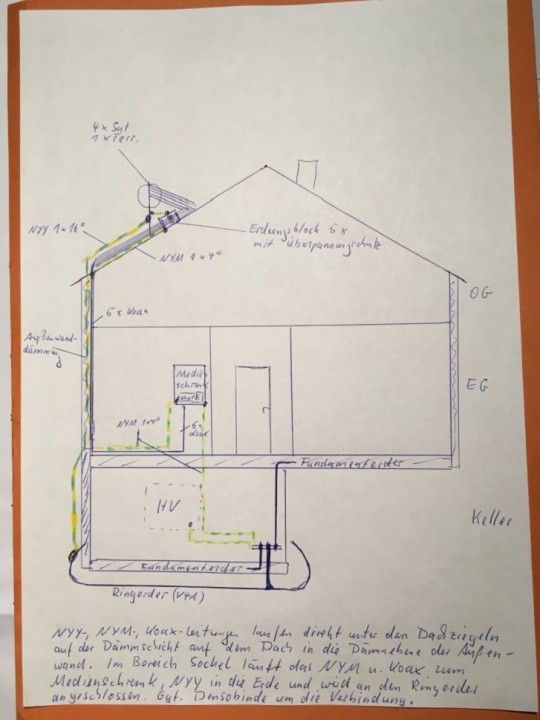 4x Sat
1x Terr.
NYY 1x16²
Erdungsblock 5x
mit Überspannungschutz
NYM 1x4²
5x Koax
OG
Außenwand-
dämmung
Medien
schrank
EG
NYM 1x4²
5x
Koax
Fundamenterder
HV
Keller
Fundamenterder
Ringerder (V4A)
NYY-, NYM-, Koax-Leitungen laufen direkt unter den Dachziegeln
auf der Dämmschicht auf dem Dach in die Dämmebene der Außen-
wand. Im Bereich Sockel läuft das NYM u. Koax zum
Medienschrank, NYY in die Erde und wird an den Ringerder
angeschlossen. Ggf. Densobinde um die Verbindung.